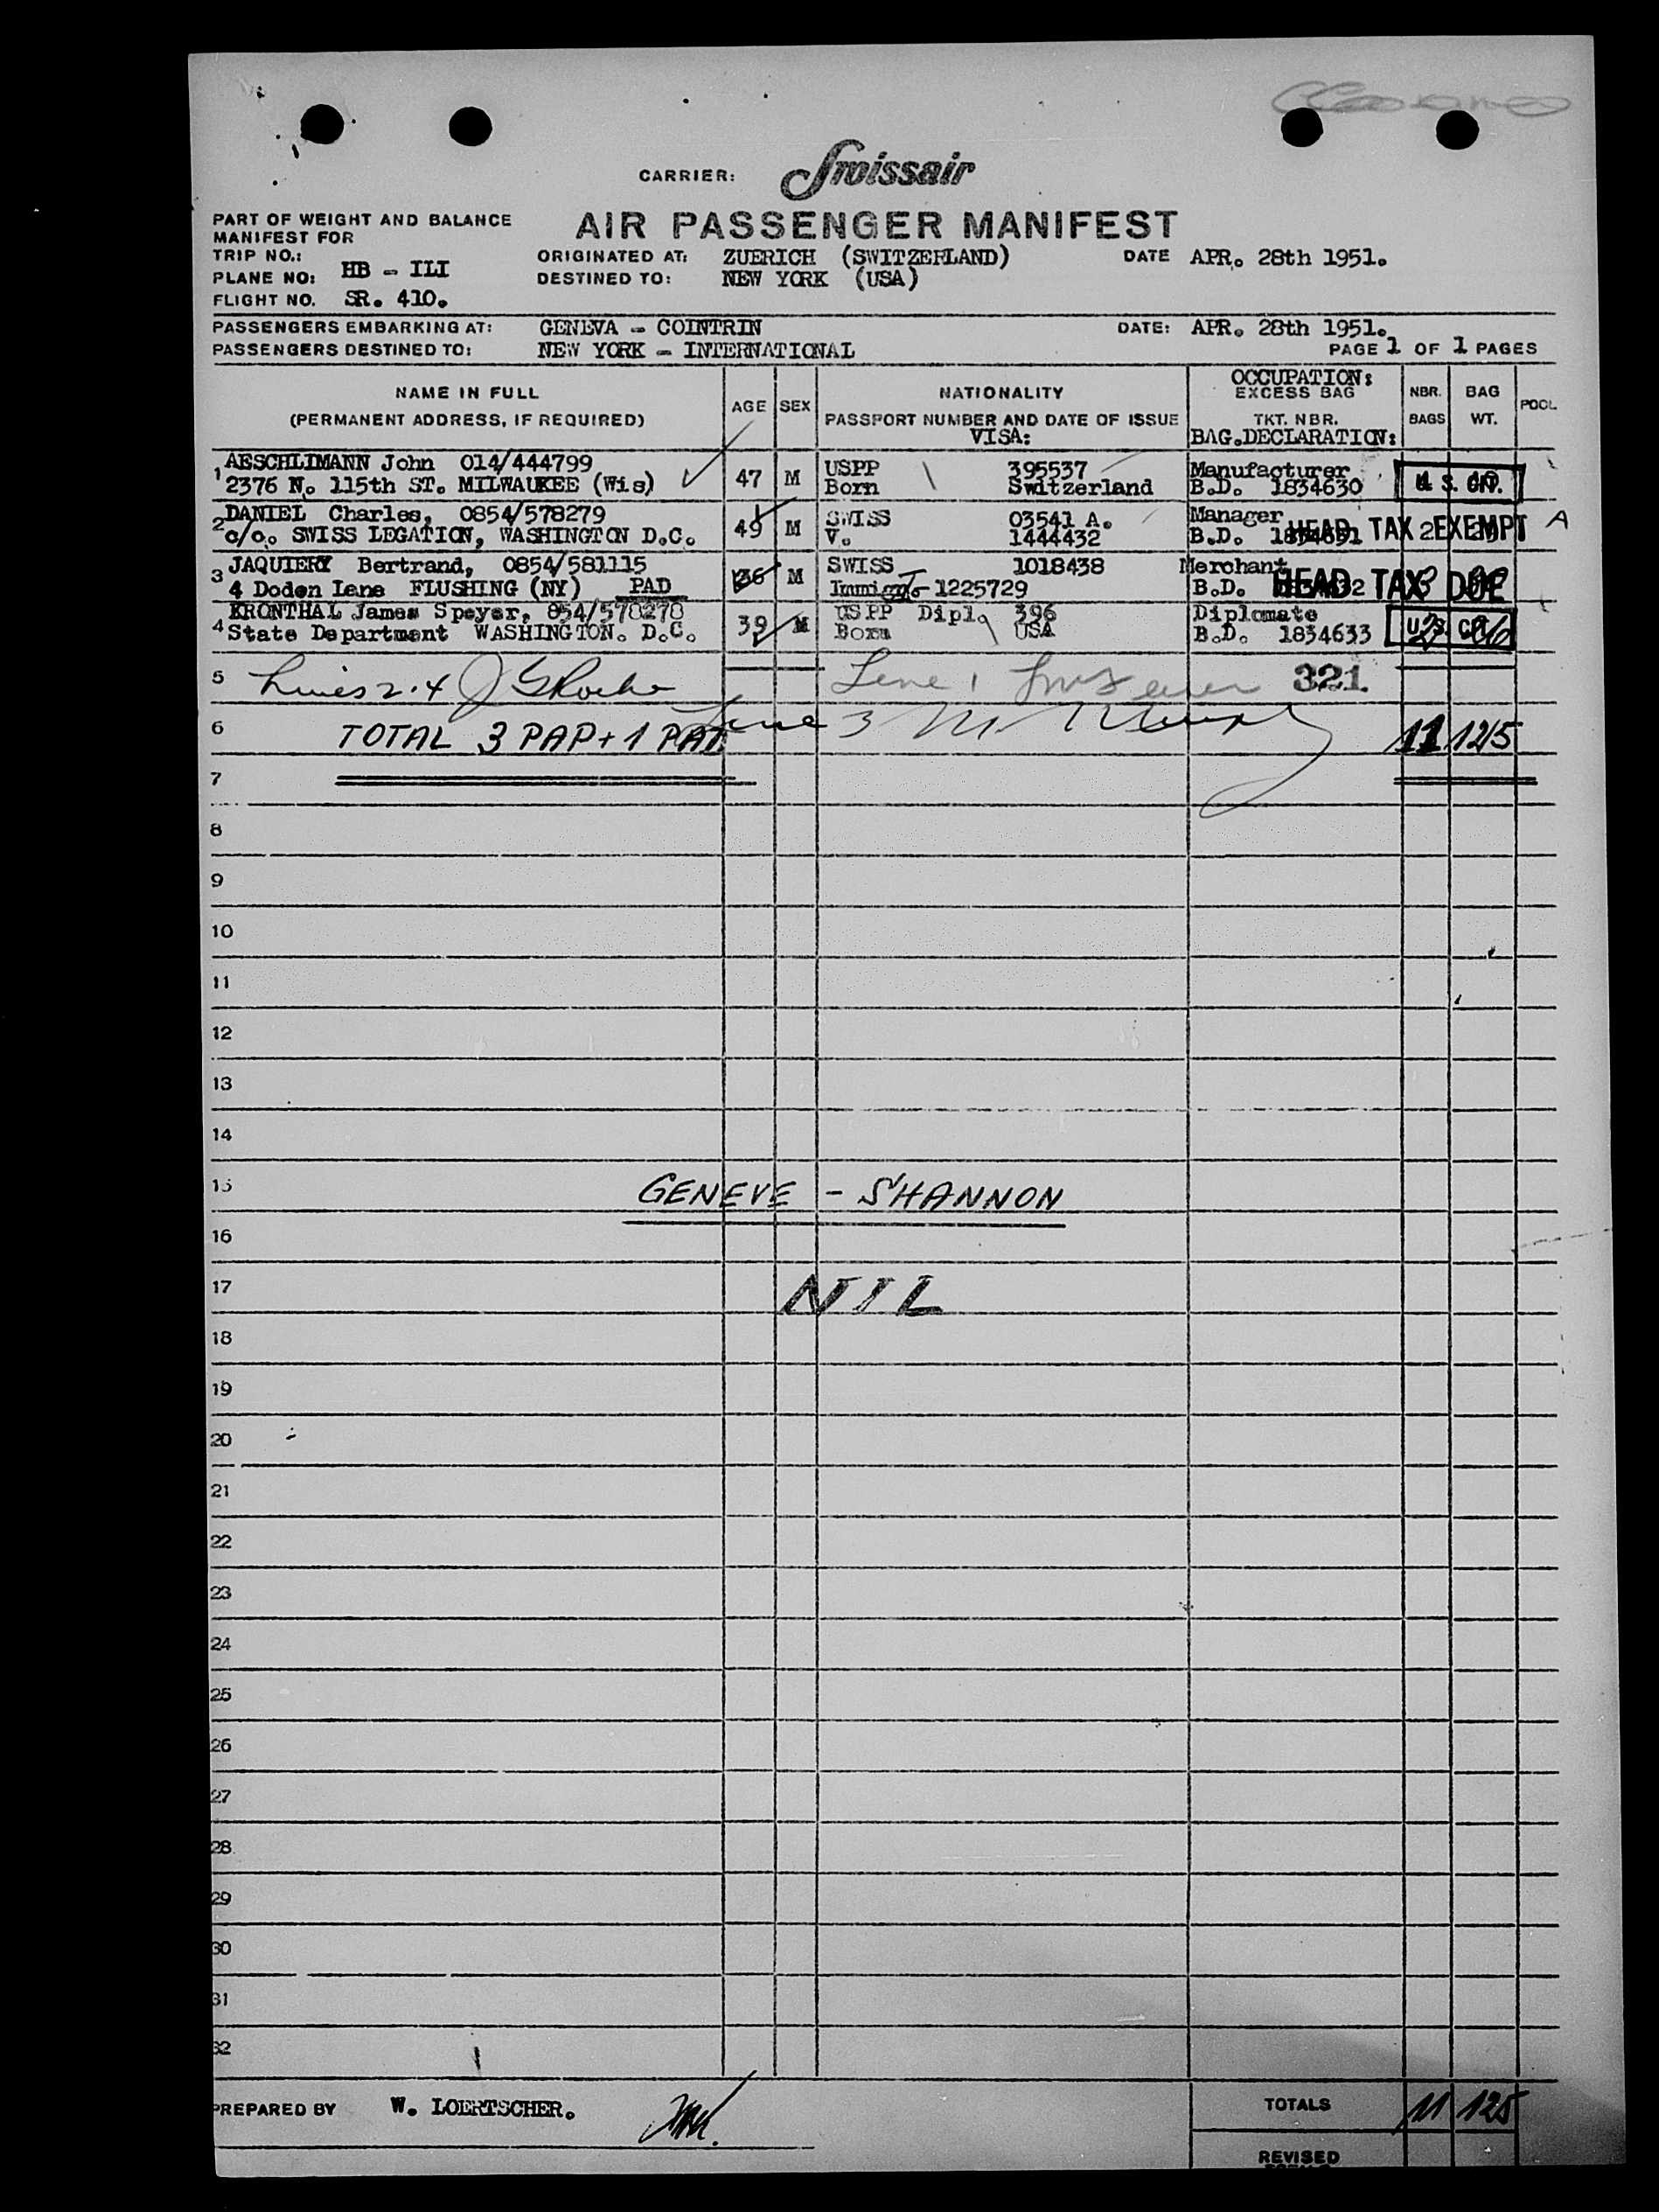 CARRIER: Swissair
PART OF WEIGHT AND BALANCE
MANIFEST FOR
AIR PASSENGER MANIFEST
TRIP NO.:
PLANE NO: HB - ILI
FLIGHT NO. SR. 410.
ORIGINATED AT: ZUERICH (SWITZERLAND) DATE APR. 28th 1951.
DESTINED TO: NEW YORK (USA)
PASSENGERS EMBARKING AT: GENEVA - COINTRIN DATE: APR. 28th 1951.
PASSENGERS DESTINED TO: NEW YORK - INTERNATIONAL PAGE 1 OF 1 PAGES
NAME IN FULL
(PERMANENT ADDRESS, IF REQUIRED)
AGE SEX
NATIONALITY
PASSPORT NUMBER AND DATE OF ISSUE
VISA:
OCCUPATION:
EXCESS BAG
TKT. NBR.
BAG.DECLARATION:
NBR. BAGS
BAG WT.
POOL
1 AESCHLIMANN John 014/444799 47 M USPP 395537 Manufacturer
2376 N. 115th ST. MILWAUKEE (Wis) Born Switzerland B.D. 1834630 U. S. CIT.
2 DANIEL Charles, 0854/578279 49 M SWISS 03541 A. Manager
c/o. SWISS LEGATION, WASHINGTON D.C. V. 1444432 B.D. HEAD TAX EXEMPT A
3 JAQUIERY Bertrand, 0854/581115 36 M SWISS 1018438 Merchant
4 Doden Lane FLUSHING (NY) PAD 1225729 B.D. HEAD TAX DUE
4 KRONTHAL James Speyer, 854/578278 39 M USPP Dipl. 396 Diplomate
State Department WASHINGTON. D.C. Born USA B.D. 1834633 U.S. CIT.
5 Lines 2.4 Line 1 321
6 TOTAL 3 PAP + 1 PAD Line 3 11 125
7
8
9
10
11
12
13
14
15 GENEVE - SHANNON
16
17 NIL
18
19
20
21
22
23
24
25
26
27
28
29
30
31
32
PREPARED BY W. LOERTSCHER. TOTALS 11 125
REVISED